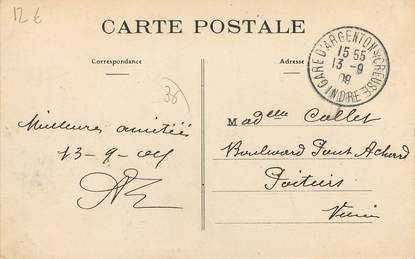 12 €
CARTE POSTALE
Correspondance
Adresse
GARE D'ARGENTON S/ CREUSE
15 55
13 - 9
09
INDRE
36
Meilleures amitiés
13-9-09
Madelle Collet
Boulevard Pont Achard
Poitiers
Vienne